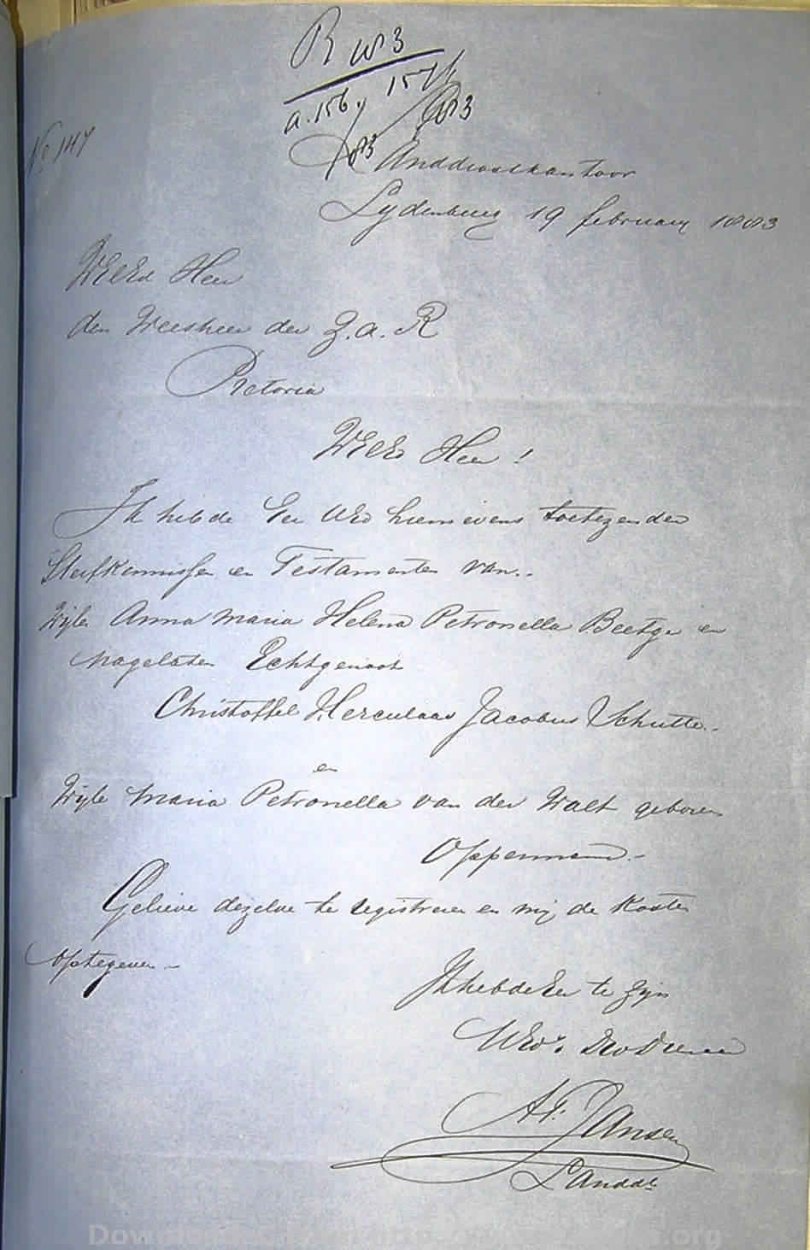 R 83
a.156/83 157/83
No 147
Landdrostkantoor
Lydenburg 19 februarij 1883
WelEd Heer
den Weesheer der Z.a.R
Pretoria
WelEd Heer!
Ik heb de Eer UEd hiernevens toetezenden
Sterfkennissen en Testamenten van..
Wijle Anna Maria Helena Petronella Beetge en
Nagelaten Echtgenoot
Christoffel Herculaas Jacobus Schutte.-
en
Wijle Maria Petronella van der Walt geboren
Opperman.-
Gelieve dezelve te registreren en mij de Kosten
optegeven -
Ik heb de Eer te zijn
UEd's DwDienaar
Jansen
Landdt